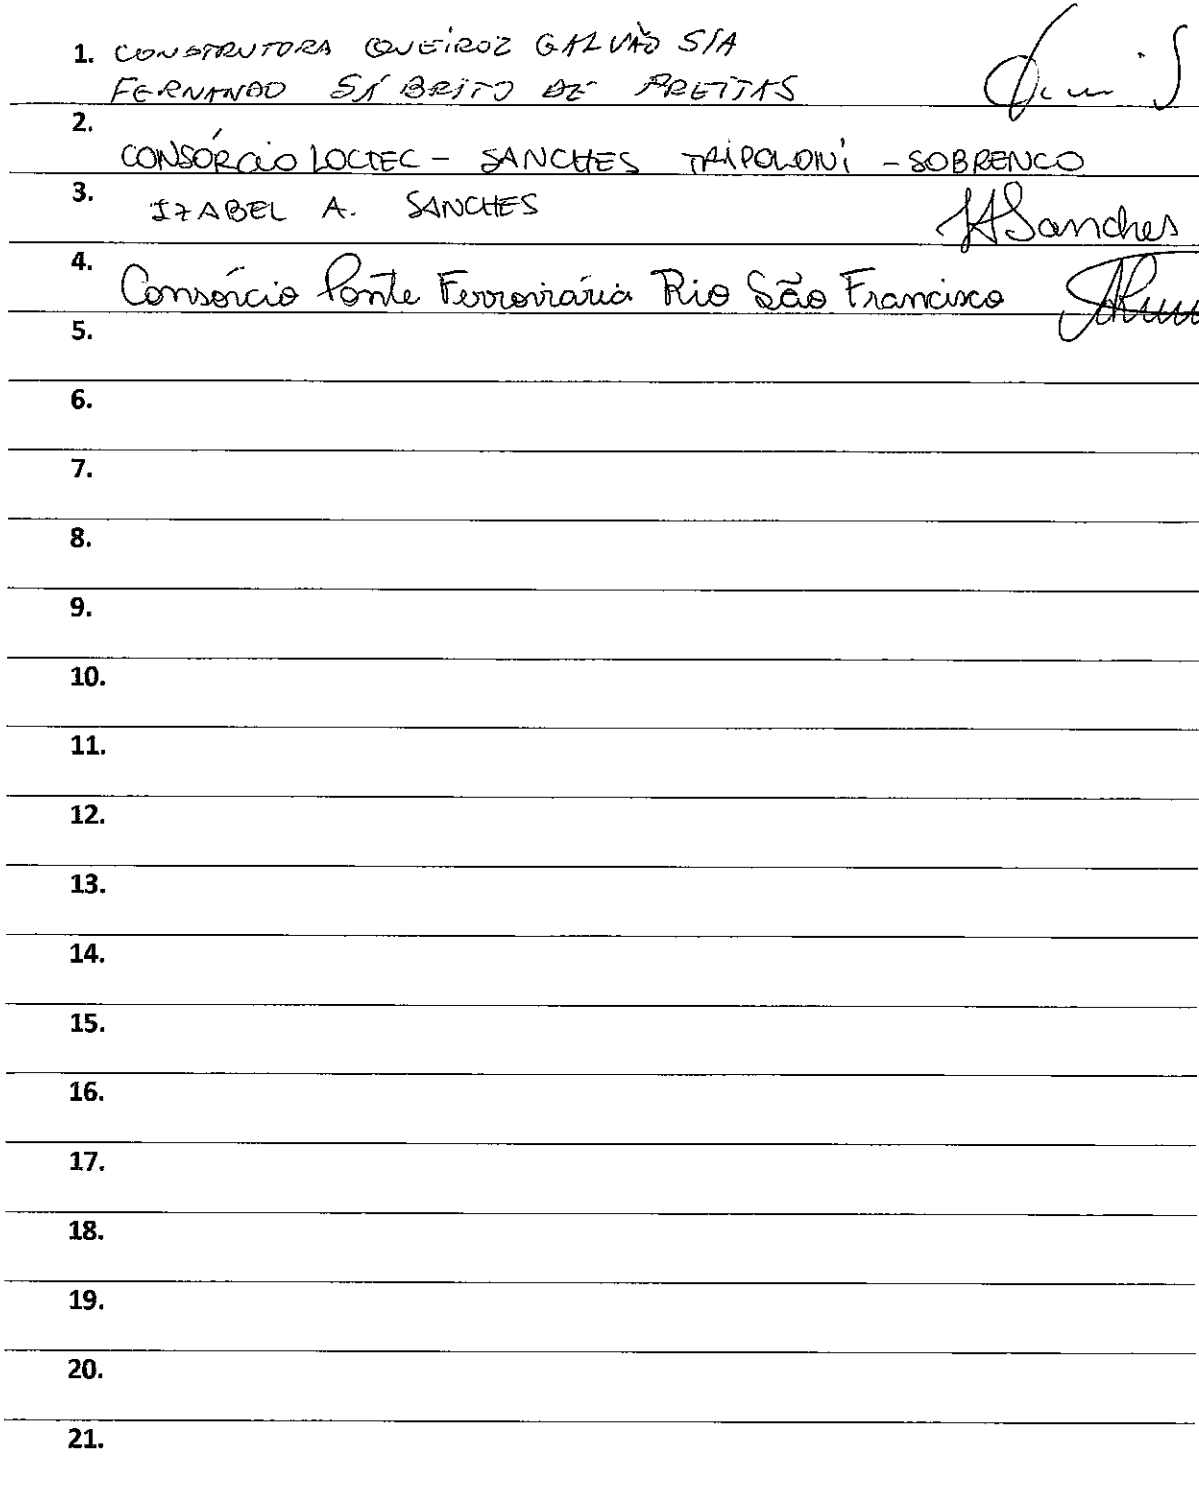 1. CONSTRUTORA QUEIROZ GALVÃO S/A
FERNANDO SÁ BRITO DE FREITAS
2.
CONSÓRCIO LOCTEC - SANCHES TRIPOLONI - SOBRENCO
3. IZABEL A. SANCHES IASanches
4. Consórcio Ponte Ferroviária Rio São Francisco
5.
6.
7.
8.
9.
10.
11.
12.
13.
14.
15.
16.
17.
18.
19.
20.
21.